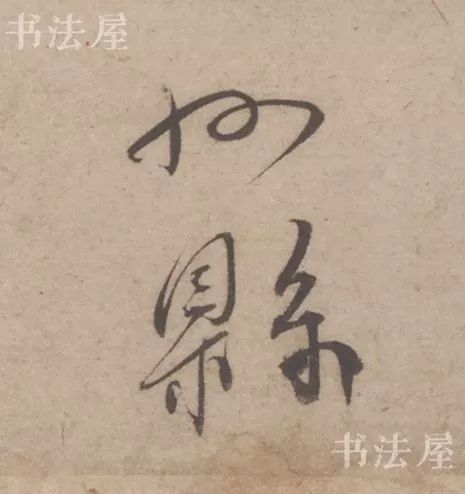 书法屋
州
縣
书法屋